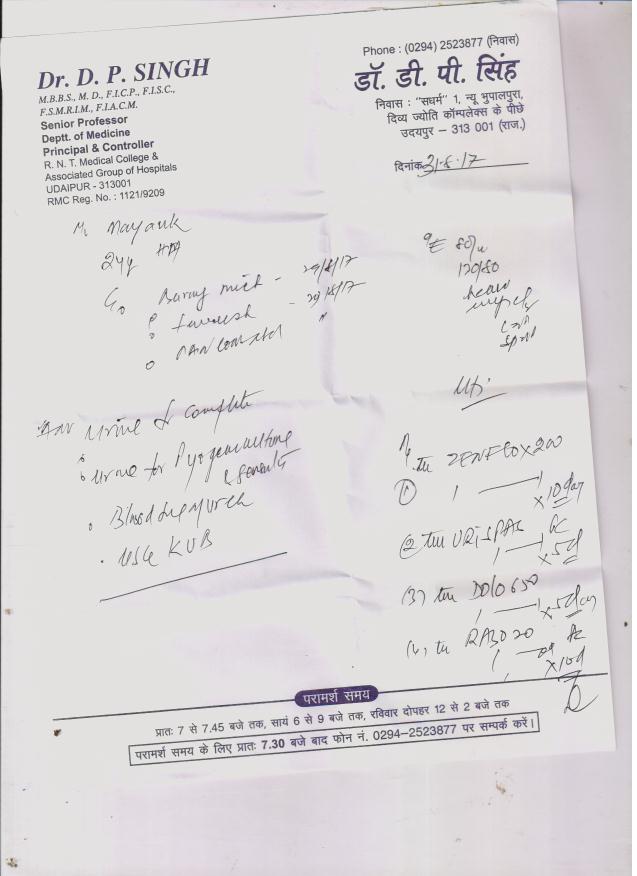 Dr. D. P. SINGH
M.B.B.S., M. D., F.I.C.P., F.I.S.C.,
F.S.M.R.I.M., F.I.A.C.M.
Senior Professor
Deptt. of Medicine
Principal & Controller
R. N. T. Medical College &
Associated Group of Hospitals
UDAIPUR - 313001
RMC Reg. No. : 1121/9209
Phone : (0294) 2523877 (निवास)
डॉ. डी. पी. सिंह
निवास : "सधर्म" 1, न्यू भुपालपुरा,
दिव्य ज्योति कॉम्पलेक्स के पीछे
उदयपुर – 313 001 (राज.)
दिनांक 31.8.17
Mr Mayank
24y
Burning mict - 29/8/17
- 29/8/17
Urine for complete
Urine for Pyogenic culture
& sensitivity
Blood urea
USG KUB
80/m
120/80
UTI
Tab ZENFLOX 200
1 × 10 day
(2) Tab URISPAS
1 × 5d
(3) Tab DOLO 650
1 × 5 day
(4) Tab RABO 20
1 × 10d
परामर्श समय
प्रातः 7 से 7.45 बजे तक, सायं 6 से 9 बजे तक, रविवार दोपहर 12 से 2 बजे तक
परामर्श समय के लिए प्रातः 7.30 बजे बाद फोन नं. 0294-2523877 पर सम्पर्क करें।